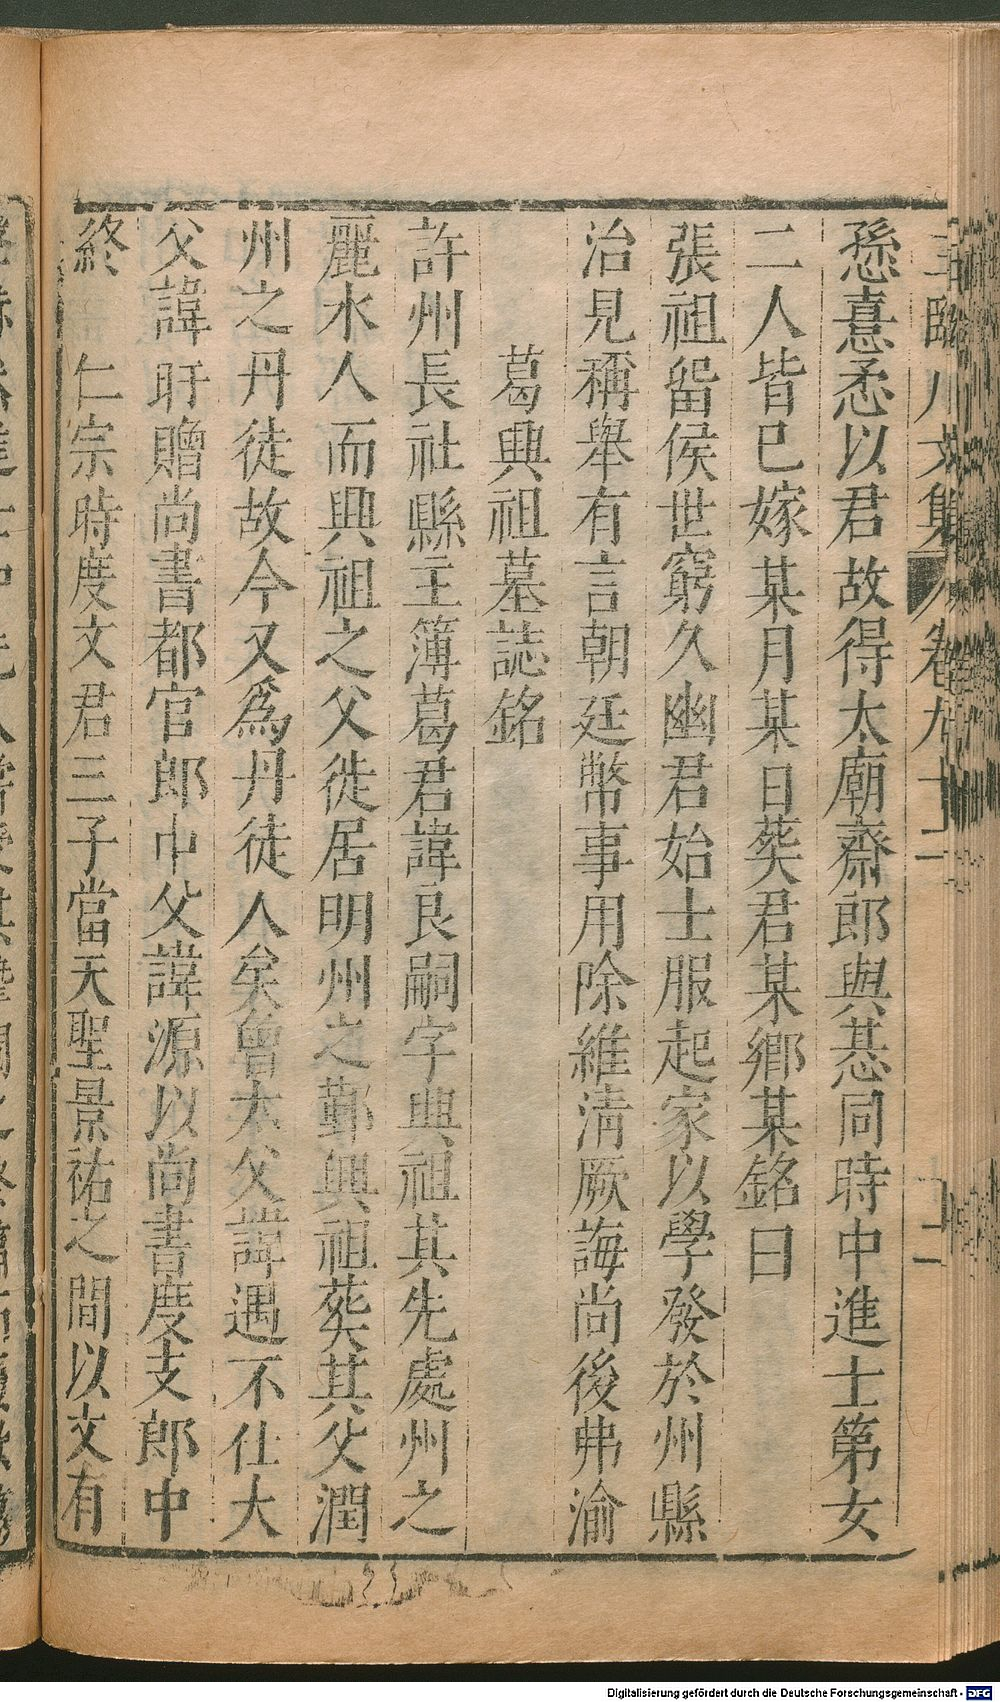 愻憙悫以君故得太廟齋郎與惎同時中進士第女
二人皆已嫁某月某日葬君某鄉某銘曰
張祖留侯世窮久幽君始士服起家以學發於州縣
治見稱舉有言朝廷幣事用除維淸厥誨尚後弗渝
葛興祖墓誌銘
許州長社縣主簿葛君諱良嗣字興祖其先處州之
麗水人而興祖之父徙居明州之鄞興祖葬其父潤
州之丹徒故今又爲丹徒人矣曾大父諱遇不仕大
父諱旰贈尚書都官郎中父諱源以尚書度支郎中
終 仁宗時度支君三子當天聖景祐之間以文有
Digitalisierung gefördert durch die Deutsche Forschungsgemeinschaft - DFG